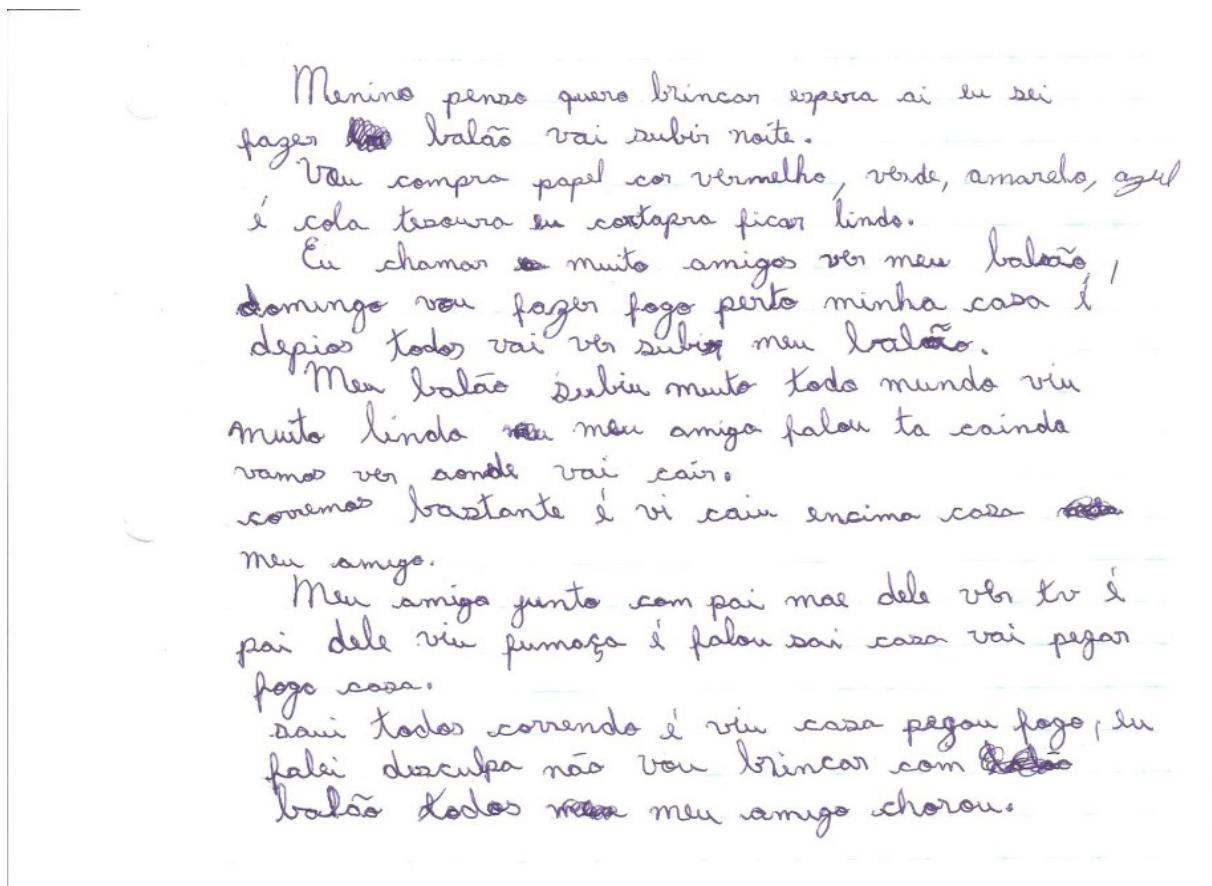 Menino penso quero brincar espera ai eu sei
fazer balão vai subir noite.
Vou compra papel cor vermelho, verde, amarelo, azul
é cola tesoura eu cortapra ficar lindo.
Eu chamar muito amigos ver meu balão,
domingo vou fazer fogo perto minha casa é
depios todos vai ver subir meu balão.
Meu balão subiu muito todo mundo viu
muito lindo meu amigo falou ta caindo
vamos ver aonde vai cair.
corremos bastante é vi caiu encima casa
meu amigo.
Meu amigo junto com pai mae dele ver tv é
pai dele viu fumaça é falou sai casa vai pegar
fogo casa.
saui todos correndo é viu casa pegou fogo, eu
falei desculpa não vou brincar com
balão todos meu amigo chorou.